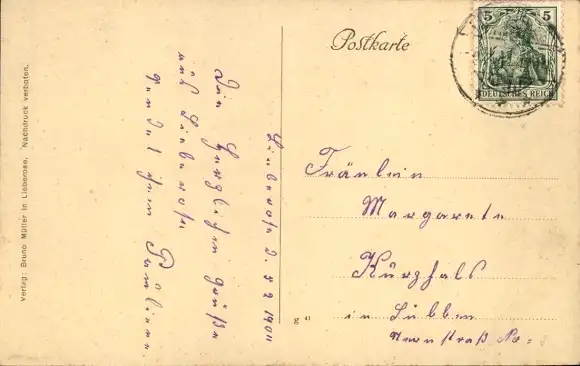 Postkarte
5 5
DEUTSCHES REICH
Lieberose d. 8 2 1911
Die Herzlichsten Grüße
aus Lieberose
sendet Ihnen Paulinen.
Fräulein
Margarete
Kurzhals
in Lübben
g 41
Verlag: Bruno Müller in Lieberose. Nachdruck verboten.